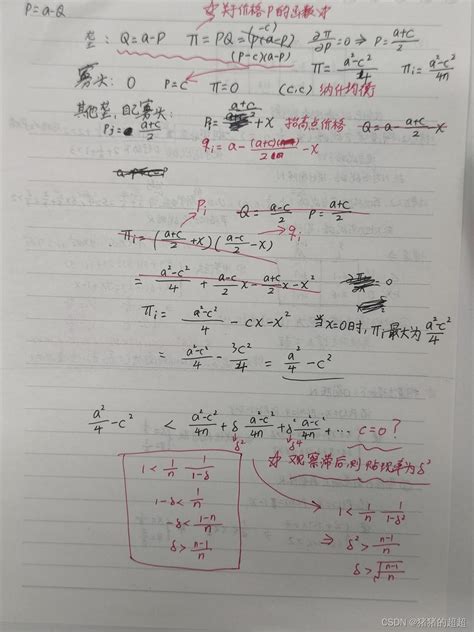 P=a-Q
对价格P的函数求
垄: Q=a-P π=PQ=(P-c)(a-P) ∂π/∂P=0 ⇒ P=(a+c)/2
(P-c)(a-P) π=(a²-c²)/4 πi=(a²-c²)/4n
雾头: 0 P=c π=0 (c,c) 纳什均衡
其他垄,自己雾头:
Pj=(a+c)/2 Pi=(a+c)/2+x 抬高点价格 Q=a-(a+c)/2-x
qi=a-(a+c)/2-x
Pi Q=(a-c)/2 P=(a+c)/2
πi=((a+c)/2+x)((a-c)/2-x) qi
=(a²-c²)/4+(a-c)/2x-(a+c)/2x-x² =0
πi=(a²-c²)/4-cx-x² 当x=0时,πi最大为(a²-c²)/4
=(a²-c²)/4-3c²/4=a²/4-c²
a²/4-c² < (a²-c²)/4n+δ(a²-c²)/4n+δ²(a²-c²)/4n+… c=0?
δ² δ⁴
观察滞后,则贴现率为δ²
1<1/n 1/(1-δ)
1-δ<1/n
-δ<(1-n)/n
δ>(n-1)/n
1<1/n 1/(1-δ²)
⇒ δ²>(n-1)/n
δ>√((n-1)/n)
CSDN @猪猪的超超